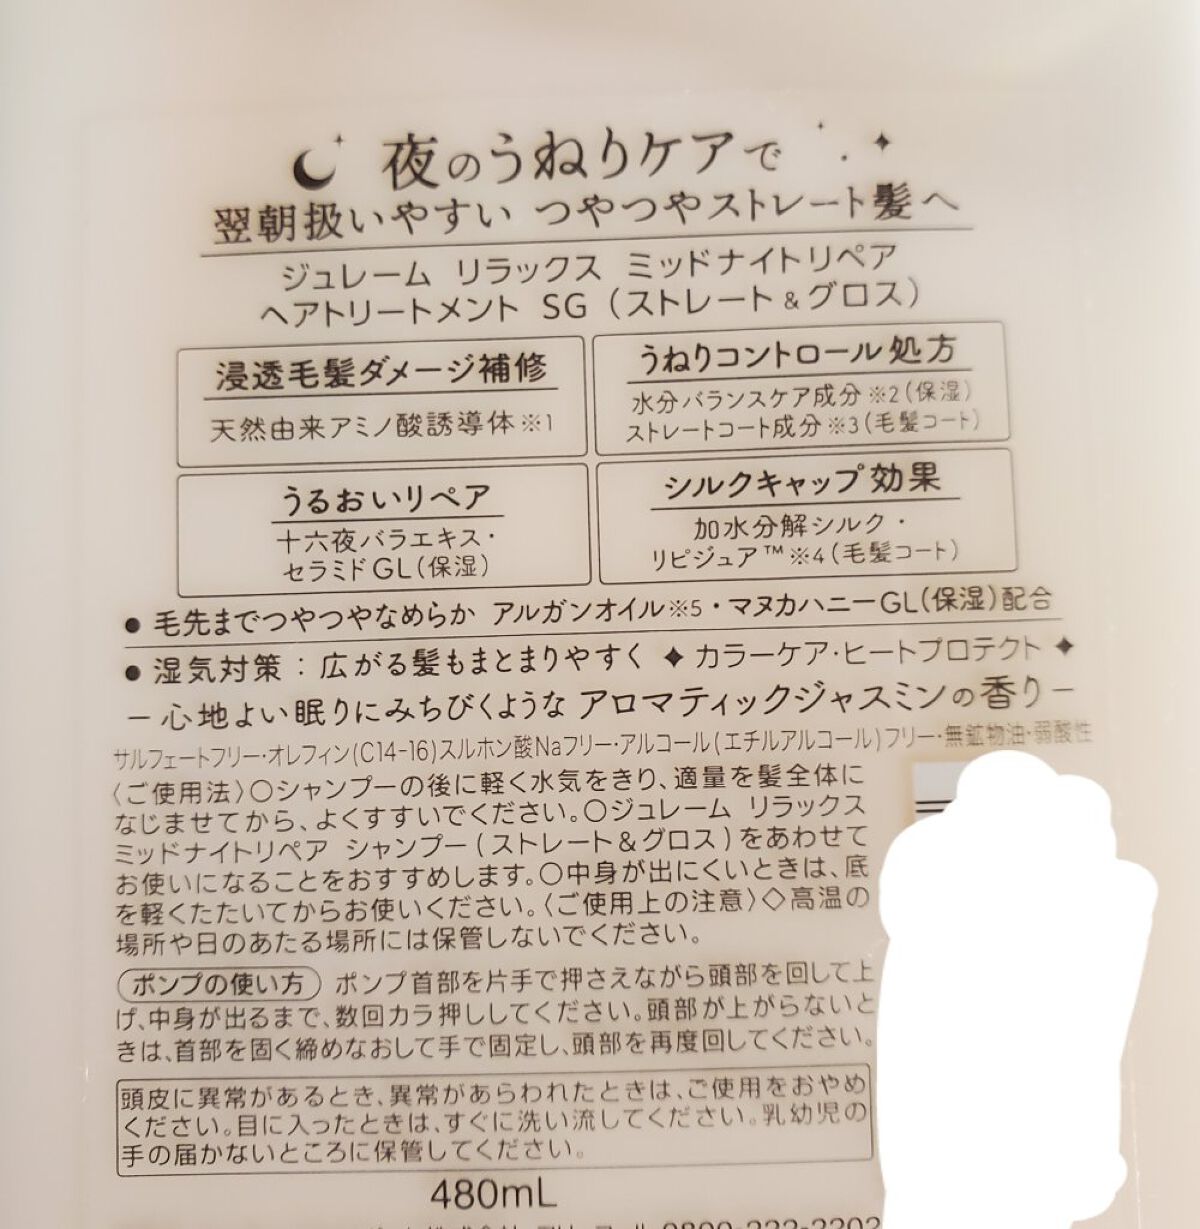 夜のうねりケアで
翌朝扱いやすい つやつやストレート髪へ
ジュレーム リラックス ミッドナイトリペア
ヘアトリートメント SG（ストレート＆グロス）
浸透毛髪ダメージ補修
天然由来アミノ酸誘導体※1
うねりコントロール処方
水分バランスケア成分※2（保湿）
ストレートコート成分※3（毛髪コート）
うるおいリペア
十六夜バラエキス・
セラミドGL（保湿）
シルクキャップ効果
加水分解シルク・
リピジュア™※4（毛髪コート）
● 毛先までつやつやなめらか アルガンオイル※5・マヌカハニーGL（保湿）配合
● 湿気対策：広がる髪もまとまりやすく ✦ カラーケア・ヒートプロテクト ✦
− 心地よい眠りにみちびくような アロマティックジャスミンの香り −
サルフェートフリー・オレフィン(C14-16)スルホン酸Naフリー・アルコール(エチルアルコール)フリー・無鉱物油・弱酸性
〈ご使用法〉○シャンプーの後に軽く水気をきり、適量を髪全体に
なじませてから、よくすすいでください。○ジュレーム リラックス
ミッドナイトリペア シャンプー（ストレート＆グロス）をあわせて
お使いになることをおすすめします。○中身が出にくいときは、底
を軽くたたいてからお使いください。〈ご使用上の注意〉◇高温の
場所や日のあたる場所には保管しないでください。
ポンプの使い方 ポンプ首部を片手で押さえながら頭部を回して上
げ、中身が出るまで、数回カラ押ししてください。頭部が上がらないと
きは、首部を固く締めなおして手で固定し、頭部を再度回してください。
頭皮に異常があるとき、異常があらわれたときは、ご使用をおやめ
ください。目に入ったときは、すぐに洗い流してください。乳幼児の
手の届かないところに保管してください。
480mL